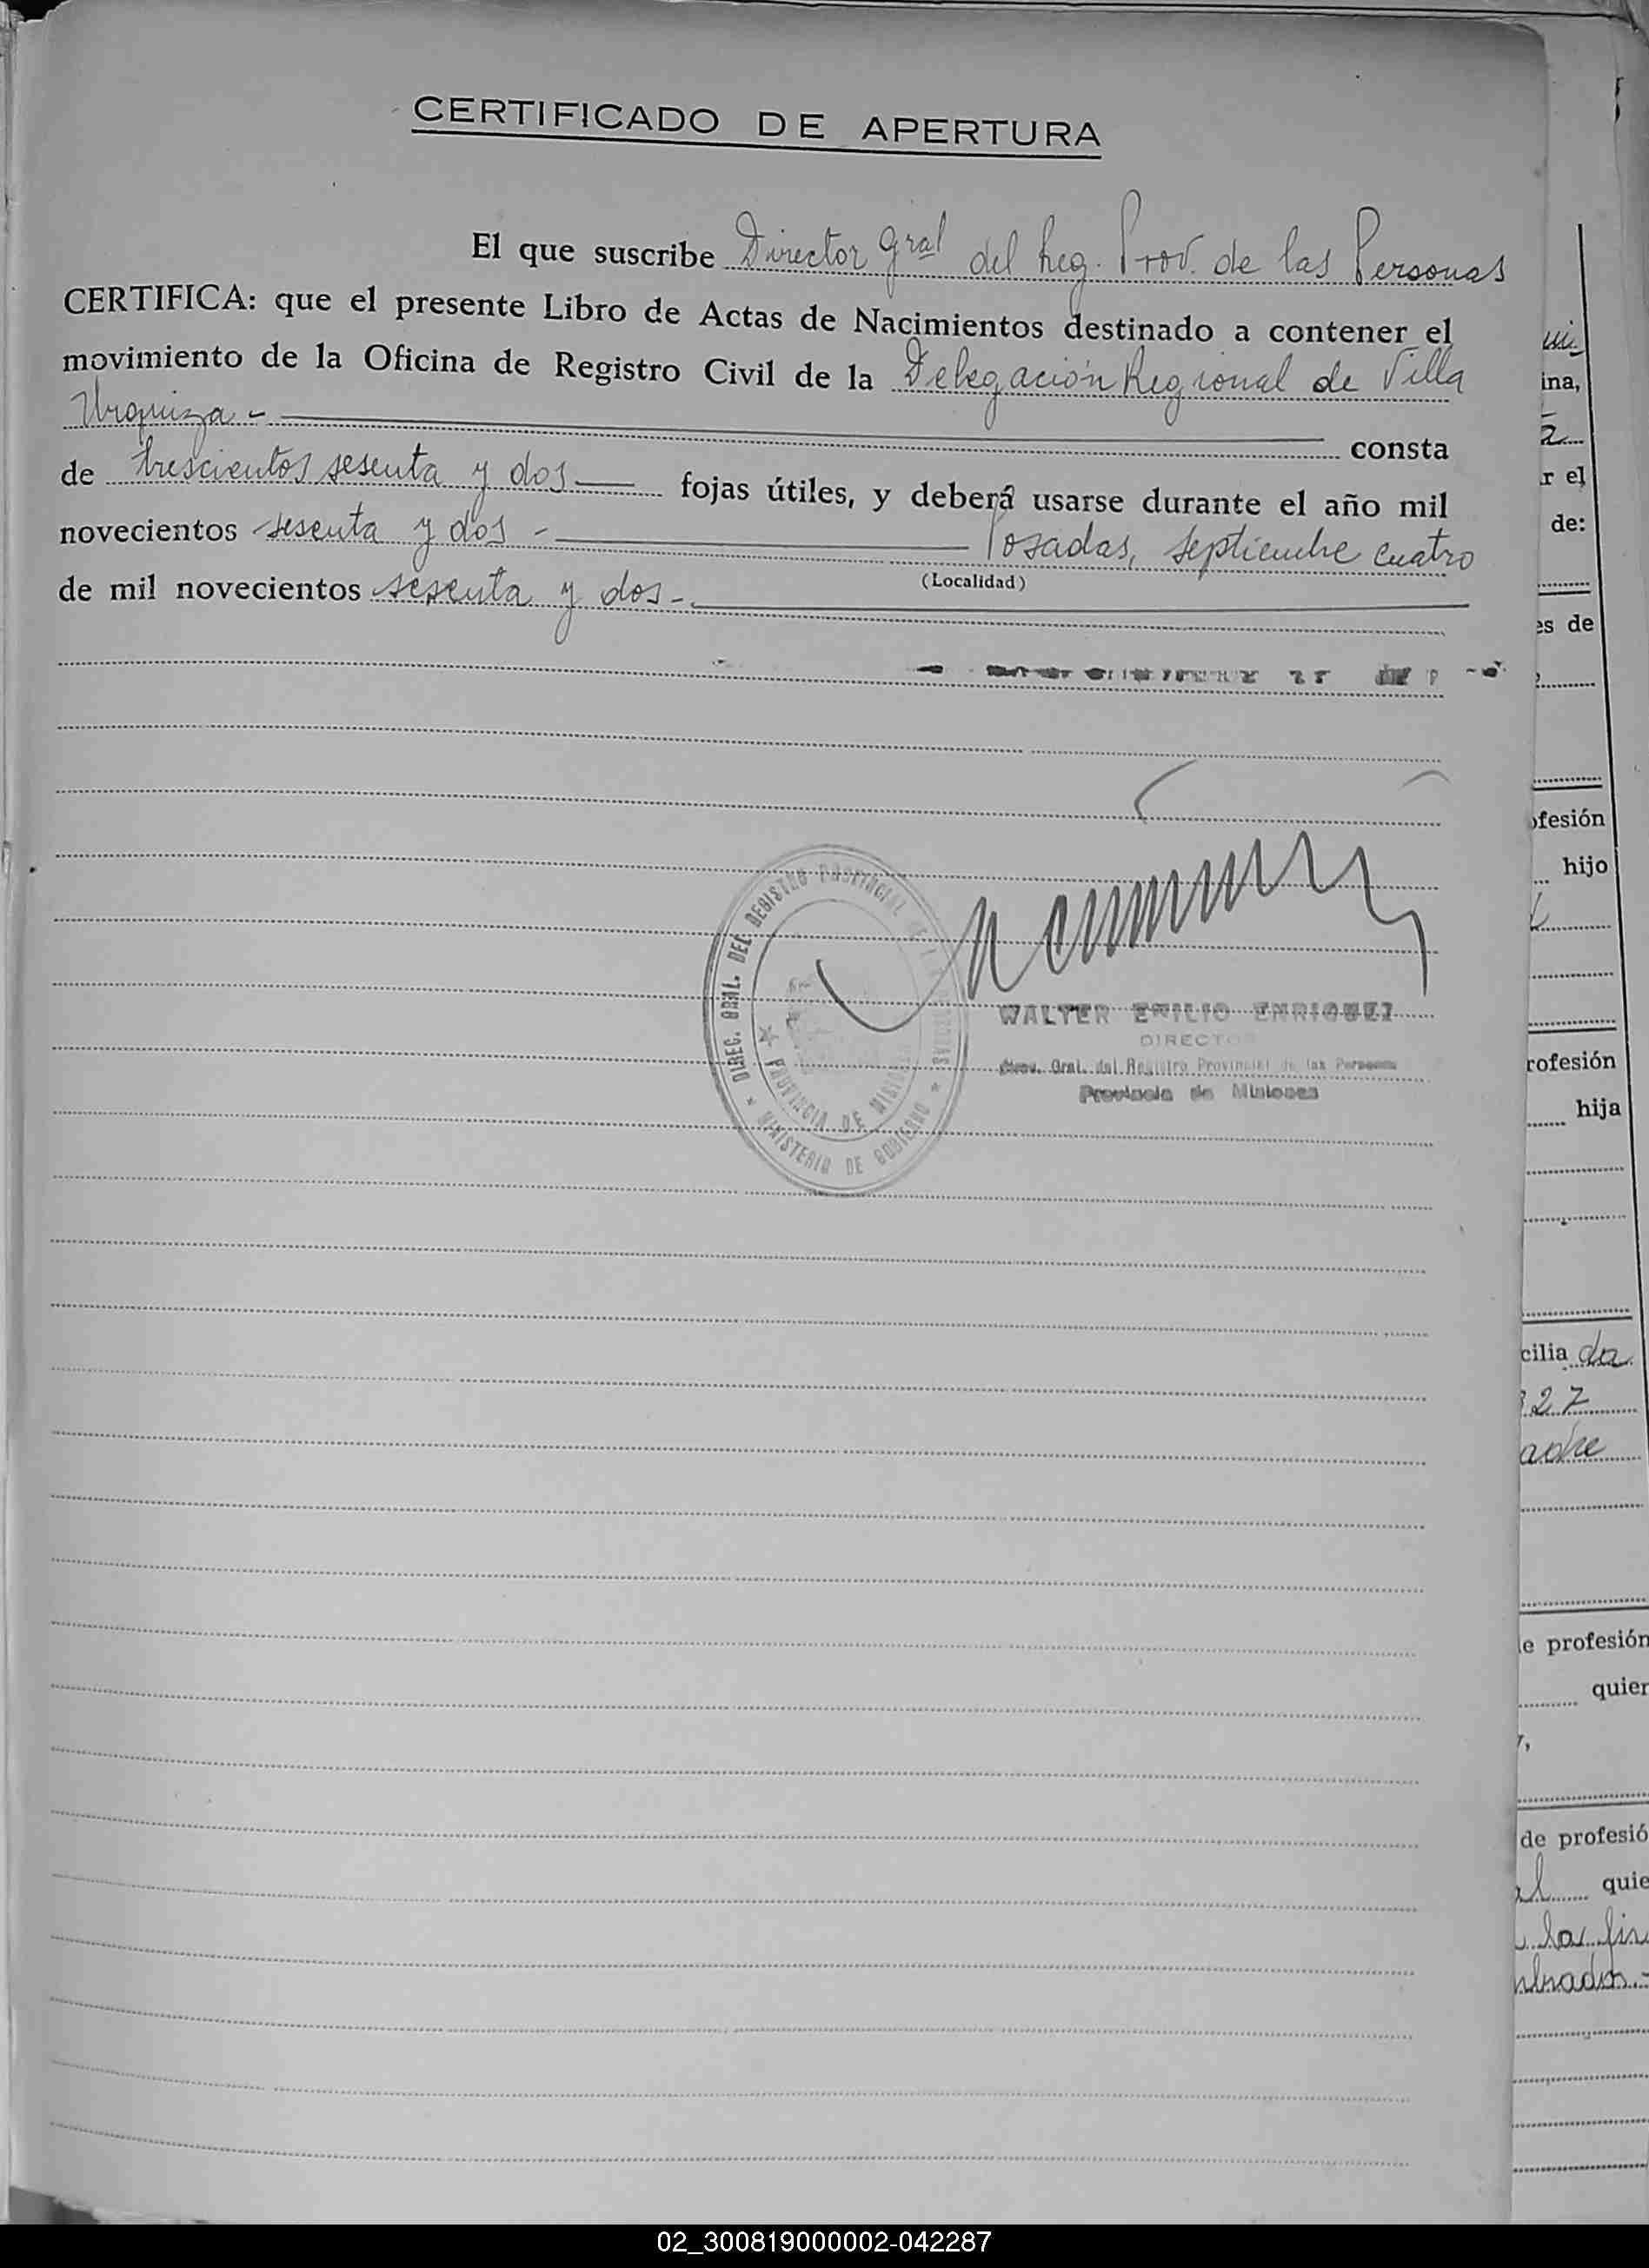 CERTIFICADO DE APERTURA
El que suscribe Director Gral del Reg. Prov. de las Personas
CERTIFICA: que el presente Libro de Actas de Nacimientos destinado a contener el
movimiento de la Oficina de Registro Civil de la Delegación Regional de Villa
Urquiza -
consta
de trescientos sesenta y dos fojas útiles, y deberá usarse durante el año mil
novecientos sesenta y dos - Posadas, septiembre cuatro
(Localidad)
de mil novecientos sesenta y dos -
DIREC. GRAL. DEL REGISTRO PROVINCIAL DE LAS PERSONAS
PROVINCIA DE MISIONES
MINISTERIO DE GOBIERNO
WALTER EMILIO ENRIQUEZ
DIRECTOR
Direc. Gral. del Registro Provincial de las Personas
Provincia de Misiones
ina,
r el
de:
es de
ofesión
hijo
rofesión
hija
cilia da
327
adre
e profesión
quien
de profesió
al quie
la fir
02_300819000002-042287